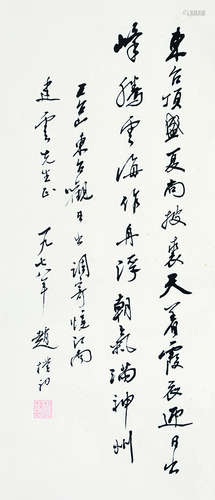 東台頂盛夏尚披裘天着霞衣迎日出
峰騰雲海作舟浮朝氣滿神州
五台山東台觀日出調寄憶江南
建雲先生正
一九七八年 趙樸初